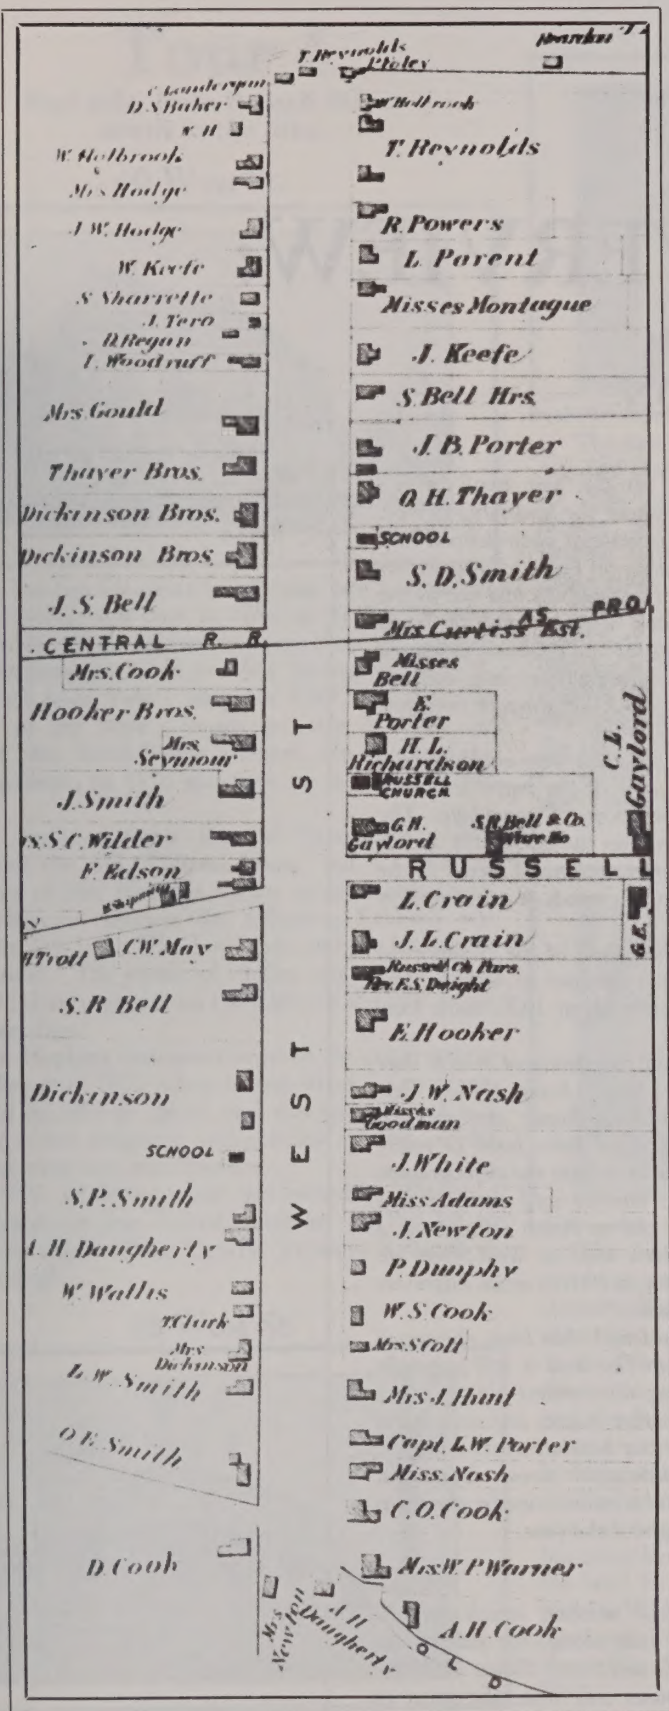 T. Reynolds
P. Foley
Reardon
C. Londergan
D. S. Baker
W. H
W. Holbrook
Mrs Hodge
J. W. Hodge
W. Keefe
S. Sharrette
J. Tero
D. Regan
L. Woodruff
Mrs. Gould
Thayer Bros.
Dickinson Bros.
Dickinson Bros.
J. S. Bell
CENTRAL R. R.
Mrs. Cook
Hooker Bros.
Mrs.
Seymour
J. Smith
S. C. Wilder
F. Edson
Trott
C. W. May
S. R Bell
Dickinson
SCHOOL
S. P. Smith
A. H. Daugherty
W. Wallis
T. Clark
Mrs
Dickinson
L. W. Smith
O. E. Smith
D. Cook
WEST ST
W. Holbrook
T. Reynolds
R. Powers
L. Parent
Misses Montague
J. Keefe
S. Bell Hrs.
J. B. Porter
O. H. Thayer
SCHOOL
S. D. Smith
AS PRO.
Mrs. Curtiss Est.
Misses
Bell
E.
Porter
H. L.
Richardson
C. L.
Gaylord
RUSSELL
CHURCH
G. H.
Gaylord
S. R. Bell & Co.
Ware Ho
RUSSELL
L. Crain
G. E.
J. L. Crain
Russell Ch. Pars.
Rev. E. S. Dwight
E. Hooker
J. W. Nash
Misses
Goodman
J. White
Miss Adams
J. Newton
P. Dunphy
W. S. Cook
Mrs S. Colt
Mrs J. Hunt
Capt. L. W. Porter
Miss. Nash
C. O. Cook
Mrs W. P. Warner
A. H. Cook
Mrs
Newton
A. H
Daugherty
OLD